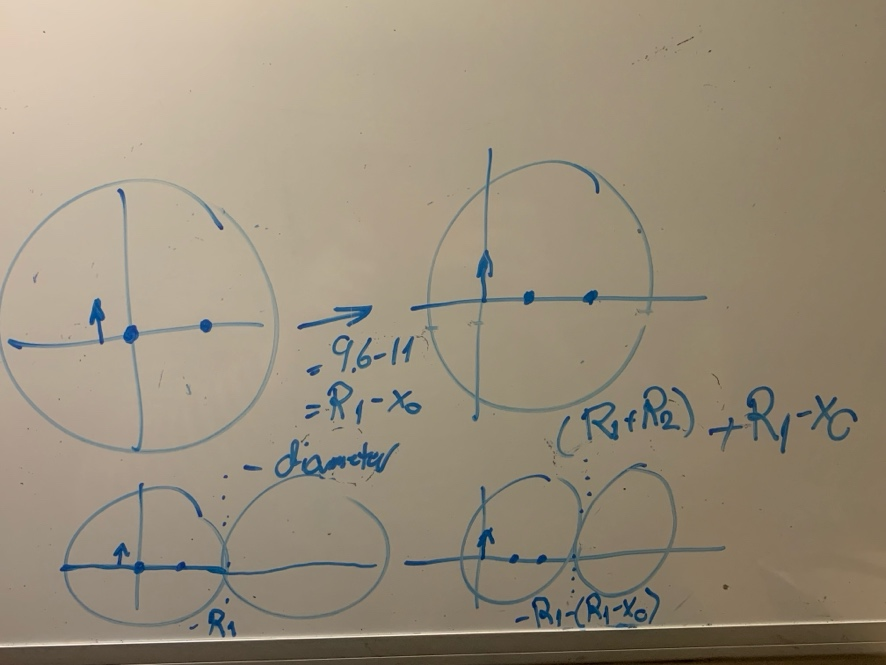 = 9.6-11
= R₁-x₀
(R₁+R₂) + R₁-x₀
- diameter
-R₁
-R₁-(R₁-x₀)